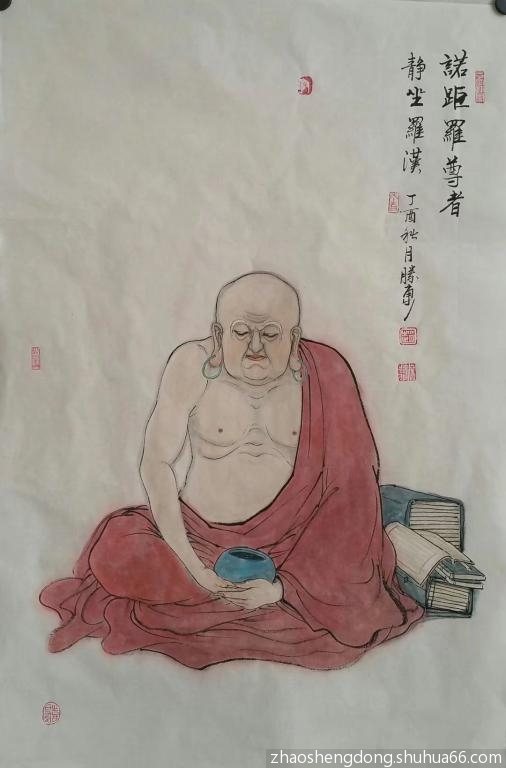 諾距羅尊者
静坐羅漢
丁酉秋月勝勇
zhaoshengdong.shuhua66.com